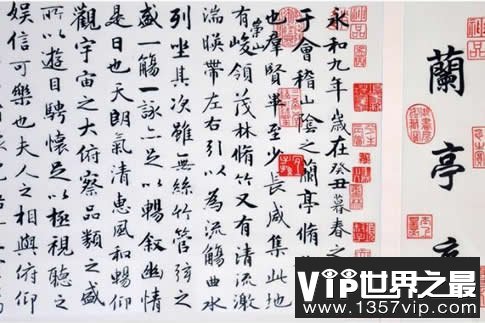 蘭亭
永和九年歲在癸丑暮春之
于會稽山陰之蘭亭脩
也群賢畢至少長咸集此地
崇山
有峻領茂林脩竹又有清流激
湍暎帶左右引以為流觴曲水
列坐其次雖無絲竹管弦之
盛一觴一詠亦足以暢敘幽情
是日也天朗氣清惠風和暢仰
觀宇宙之大俯察品類之盛
所以遊目騁懷足以極視聽之
娛信可樂也夫人之相與俯仰
VIP世界之最
www.1357vip.com